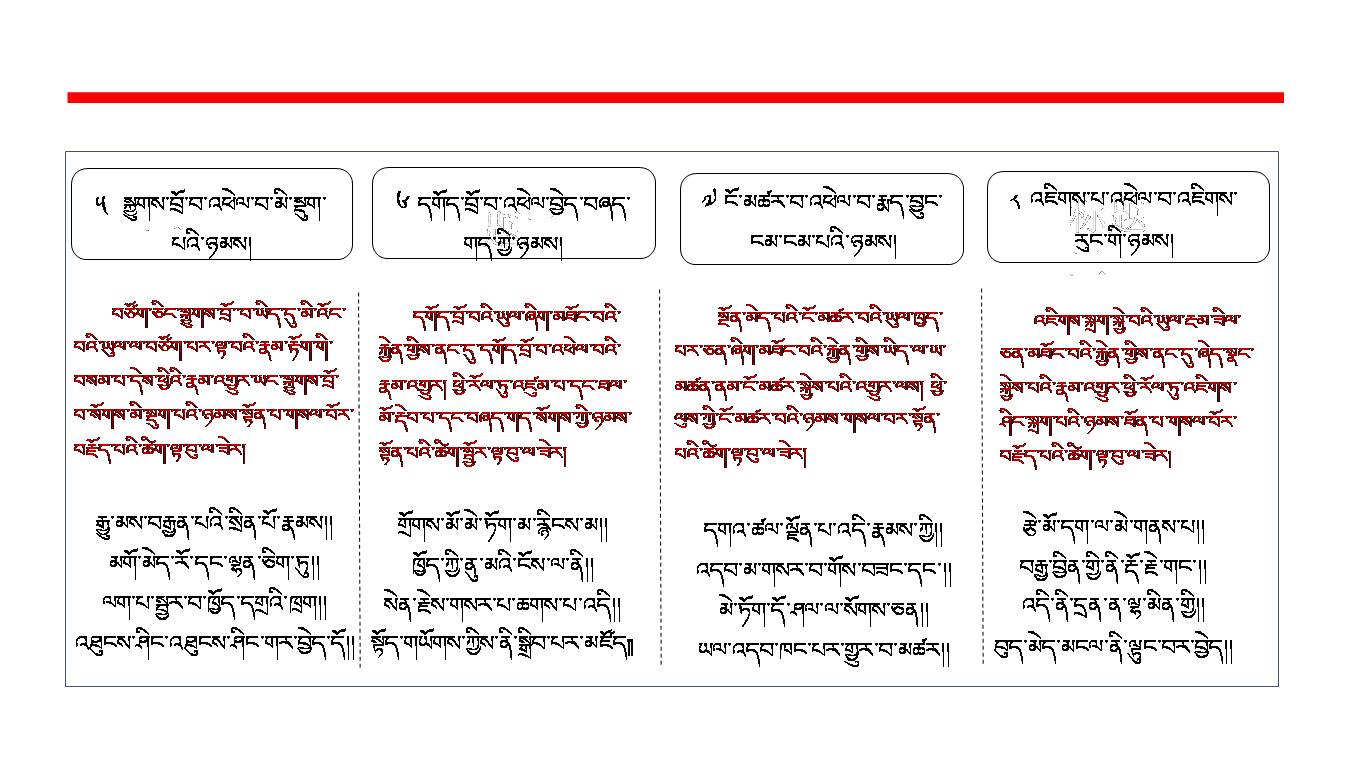 ༥ སྐྱུགས་བྲོ་བ་འཕེལ་བ་མི་སྡུག་
པའི་ཉམས།
བཙོག་ཅིང་སྐྱུགས་བྲོ་བ་ཡིད་དུ་མི་འོང་
བའི་ཡུལ་ལ་བཙོག་པར་ལྟ་བའི་རྣམ་རྟོག་གི་
བསམ་པ་དེས་ཕྱིའི་རྣམ་འགྱུར་ཡང་སྐྱུགས་བྲོ་
བ་སོགས་མི་སྡུག་པའི་ཉམས་སྟོན་པ་གསལ་བོར་
བརྗོད་པའི་ཚིག་ལྟ་བུ་ལ་ཟེར།
རྒྱུ་མས་བརྒྱན་པའི་སྲིན་པོ་རྣམས།།
མགོ་མེད་རོ་དང་ལྷན་ཅིག་ཏུ།།
ལག་པ་སྦྱར་བ་ཁྱོད་དགྲའི་ཁྲག།།
འཐུངས་ཤིང་འཐུངས་ཤིང་གར་བྱེད་དོ།།
༦ དགོད་བྲོ་བ་འཕེལ་བྱེད་བཞད་
གད་ཀྱི་ཉམས།
དགོད་བྲོ་བའི་ཡུལ་ཞིག་མཐོང་བའི་
རྐྱེན་གྱིས་ནང་དུ་དགོད་བྲོ་བ་འཕེལ་བའི་
རྣམ་འགྱུར། ཕྱི་རོལ་ཏུ་འཛུམ་པ་དང་ཐལ་
མོ་རྡེབ་པ་དང་བཞད་གད་སོགས་ཀྱི་ཉམས་
སྟོན་པའི་ཚིག་སྦྱོར་ལྟ་བུ་ལ་ཟེར།
གྲོགས་མོ་མེ་ཏོག་མ་རྙིངས་མ།།
ཁྱོད་ཀྱི་ནུ་མའི་ངོས་ལ་ནི།།
སེན་རྗེས་གསར་པ་ཆགས་པ་འདི།།
སྟོད་གཡོགས་ཀྱིས་ནི་སྒྲིབ་པར་མཛོད༎
༧ ངོ་མཚར་བ་འཕེལ་བ་རྨད་བྱུང་
ངམ་ངམ་པའི་ཉམས།
སྔོན་མེད་པའི་ངོ་མཚར་བའི་ཡུལ་ཁྱད་
པར་ཅན་ཞིག་མཐོང་བའི་རྐྱེན་གྱིས་ཡིད་ལ་ཡ་
མཚན་ནམ་ངོ་མཚར་སྐྱེས་པའི་འགྱུར་ལས། ཕྱི་
ལུས་ཀྱི་ངོ་མཚར་བའི་ཉམས་གསལ་བར་སྟོན་
པའི་ཚིག་ལྟ་བུ་ལ་ཟེར།
དགའ་ཚལ་ལྗོན་པ་འདི་རྣམས་ཀྱི།།
འདབ་མ་གསར་བ་གོས་བཟང་དང་།།
མེ་ཏོག་དོ་ཤལ་ལ་སོགས་ཅན།།
ཡལ་འདབ་ཁང་པར་གྱུར་བ་མཚར།།
༨ འཇིགས་པ་འཕེལ་བ་འཇིགས་
རུང་གི་ཉམས།
འཇིགས་སྐྲག་སྐྱེ་བའི་ཡུལ་ངམ་ཟིལ་
ཅན་མཐོང་བའི་རྐྱེན་གྱིས་ནང་དུ་ཞེད་སྣང་
སྐྱེས་པའི་རྣམ་འགྱུར་ཕྱི་རོལ་ཏུ་འཇིགས་
ཤིང་སྐྲག་པའི་ཉམས་ཐོན་པ་གསལ་བོར་
བརྗོད་པའི་ཚིག་ལྟ་བུ་ལ་ཟེར།
རྩེ་མོ་དག་ལ་མེ་གནས་པ།།
བརྒྱ་བྱིན་གྱི་ནི་རྡོ་རྗེ་གང་།།
འདི་ནི་དྲན་ན་ལྷ་མིན་གྱི།།
བུད་མེད་མངལ་ནི་ལྷུང་བར་བྱེད།།